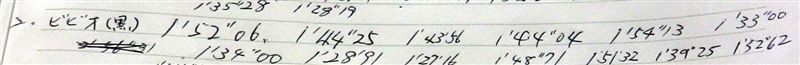 1'35"28 1'28"19
2. ビビオ(黒) 1'52"06. 1'44"25 1'43"56 1'44"04 1'54"13 1'33"00
1'34"00 1'28"91 1'27"16 1'48"71 1'51"32 1'39"25 1'52"62